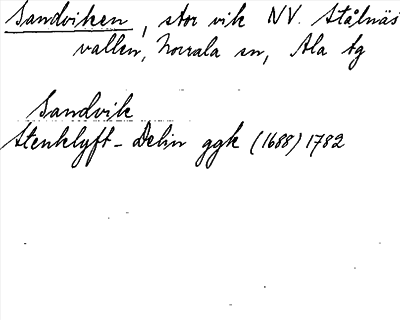 Sandviken, stor vik NV. Stålnäs
vallen, Norrala sn, Ala tg
Sandvik
Stenklyft - Delin ggk (1688) 1782